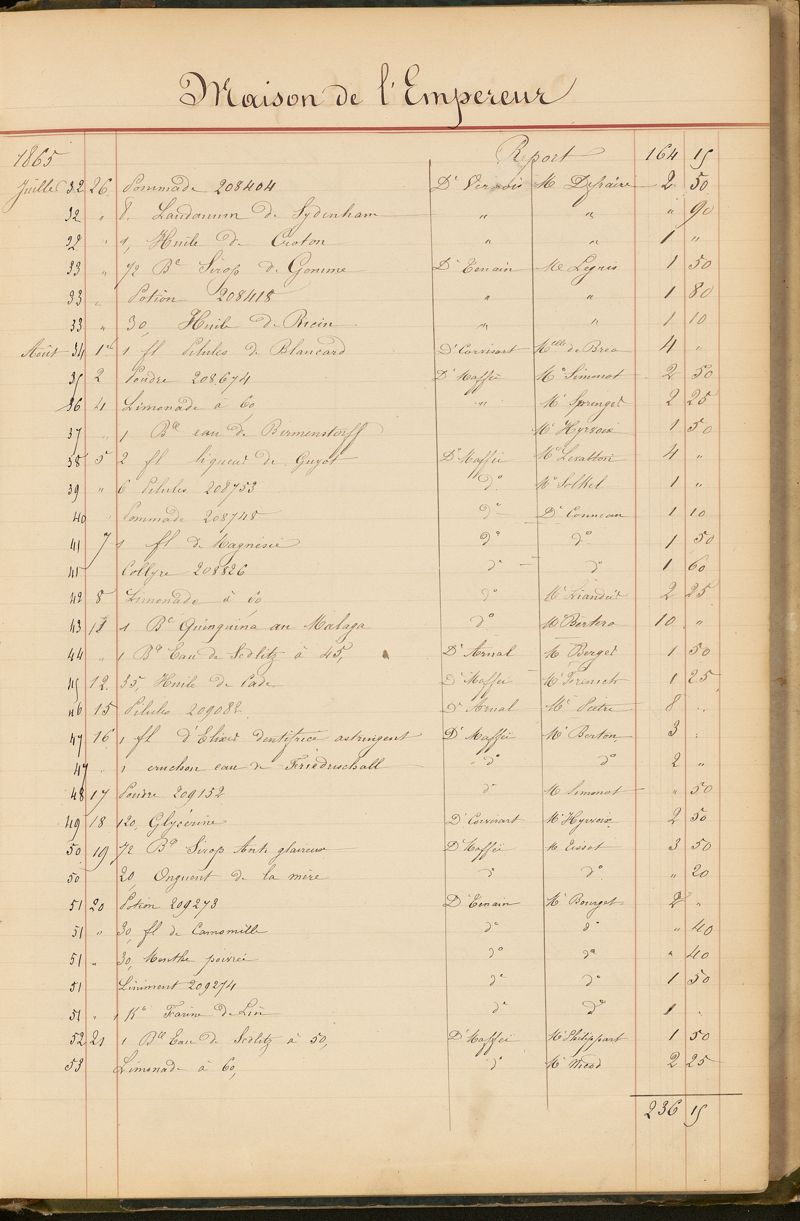 Maison de l'Empereur
1865 Report 164 15
Juillet 32 26 Pommade 208404 Dr Vernois Mr Defraire 2 50
32 " 8. Laudanum de Sydenham " " " 90
32 " 1, Huile de Croton " " 1 "
33 " 1/2 Ble Sirop de Gomme Dr Tenain Mr Legris 1 50
33 " Potion 208418 " " 1 80
33 " 30, Huile de Ricin " " 1 10
Août 34 1er 1 fl Pilules de Blancard Dr Corvisart Melle de Brea 4 "
35 2 Poudre 208674 Dr Maffei Mr Simonot 2 50
36 4 Limonade à 60 " Mr Sprenger 2 25
37 " 1 Ble eau de Birmenstorff Mr Hyrvoix 1 50
38 5 2 fl liqueur de Guyot Dr Maffei Mr 4 "
39 " 6 Pilules 208753 do Mr 1 "
40 " Pommade 208748 do Dr Conneau 1 10
41 7 1 fl de Magnésie do do 1 50
41 Collyre 208826 do do 1 60
42 8 Limonade à 60 do Mr 2 25
43 11 1 Ble Quinquina au Malaga do Mr Bertora 10 "
44 " 1 Ble Eau de Sedlitz à 45, Dr Arnal Mr Berger 1 50
45 12 35, Huile de Cade Dr Maffei Mr 1 25
46 15 Pilules 209082 Dr Arnal Mr Pietre 8 "
47 16 1 fl d'Elixir dentifrice astringent Dr Maffei Mr Berton 3 "
47 " 1 cruchon eau de Friedrischall do do 2 "
48 17 Poudre 209152 do Mr Simonot " 50
49 18 120, Glycérine Dr Corvisart Mr Hyrvoix 2 50
50 19 1/2 Ble Sirop Anti glaireux Dr Maffei Mr Tissot 3 50
50 20, Onguent de la mère do do " 20
51 20 Potion 209273 Dr Tenain Mr Bourget 2 "
51 " 30, fl de Camomille do do " 40
51 " 30, Menthe poivrée do do " 40
51 Liniment 209274 do do 1 50
51 " 1 Ko Farine de Lin do do 1 "
52 21 1 Ble Eau de Sedlitz à 50, Dr Maffei Mr Philippart 1 50
53 Limonade à 60, do Mr Nicod 2 25
236 15